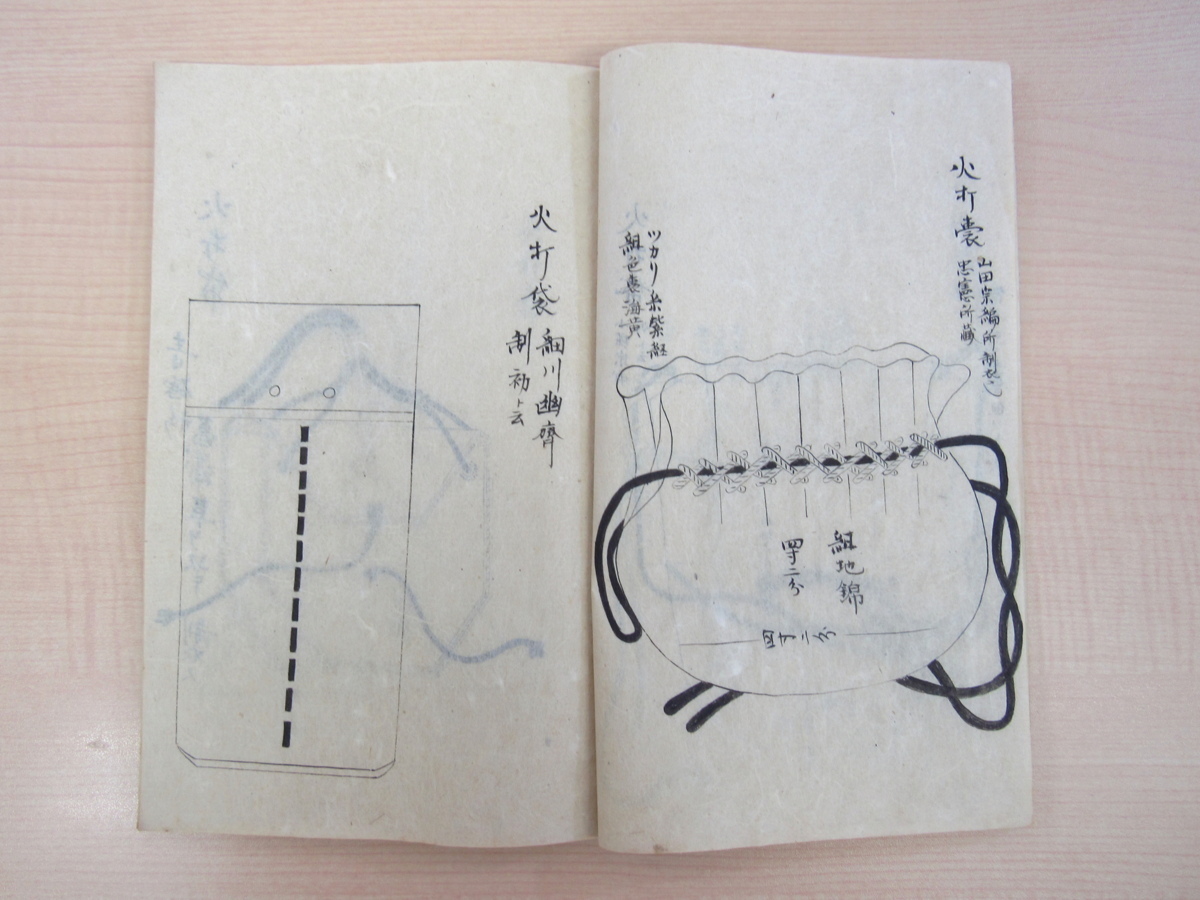 火打囊
山田宗編所制衣之
忠憲所藏
ツカリ糸紫組
組地錦
四寸二分
四寸二分
火打袋
細川幽齋
制初ト云